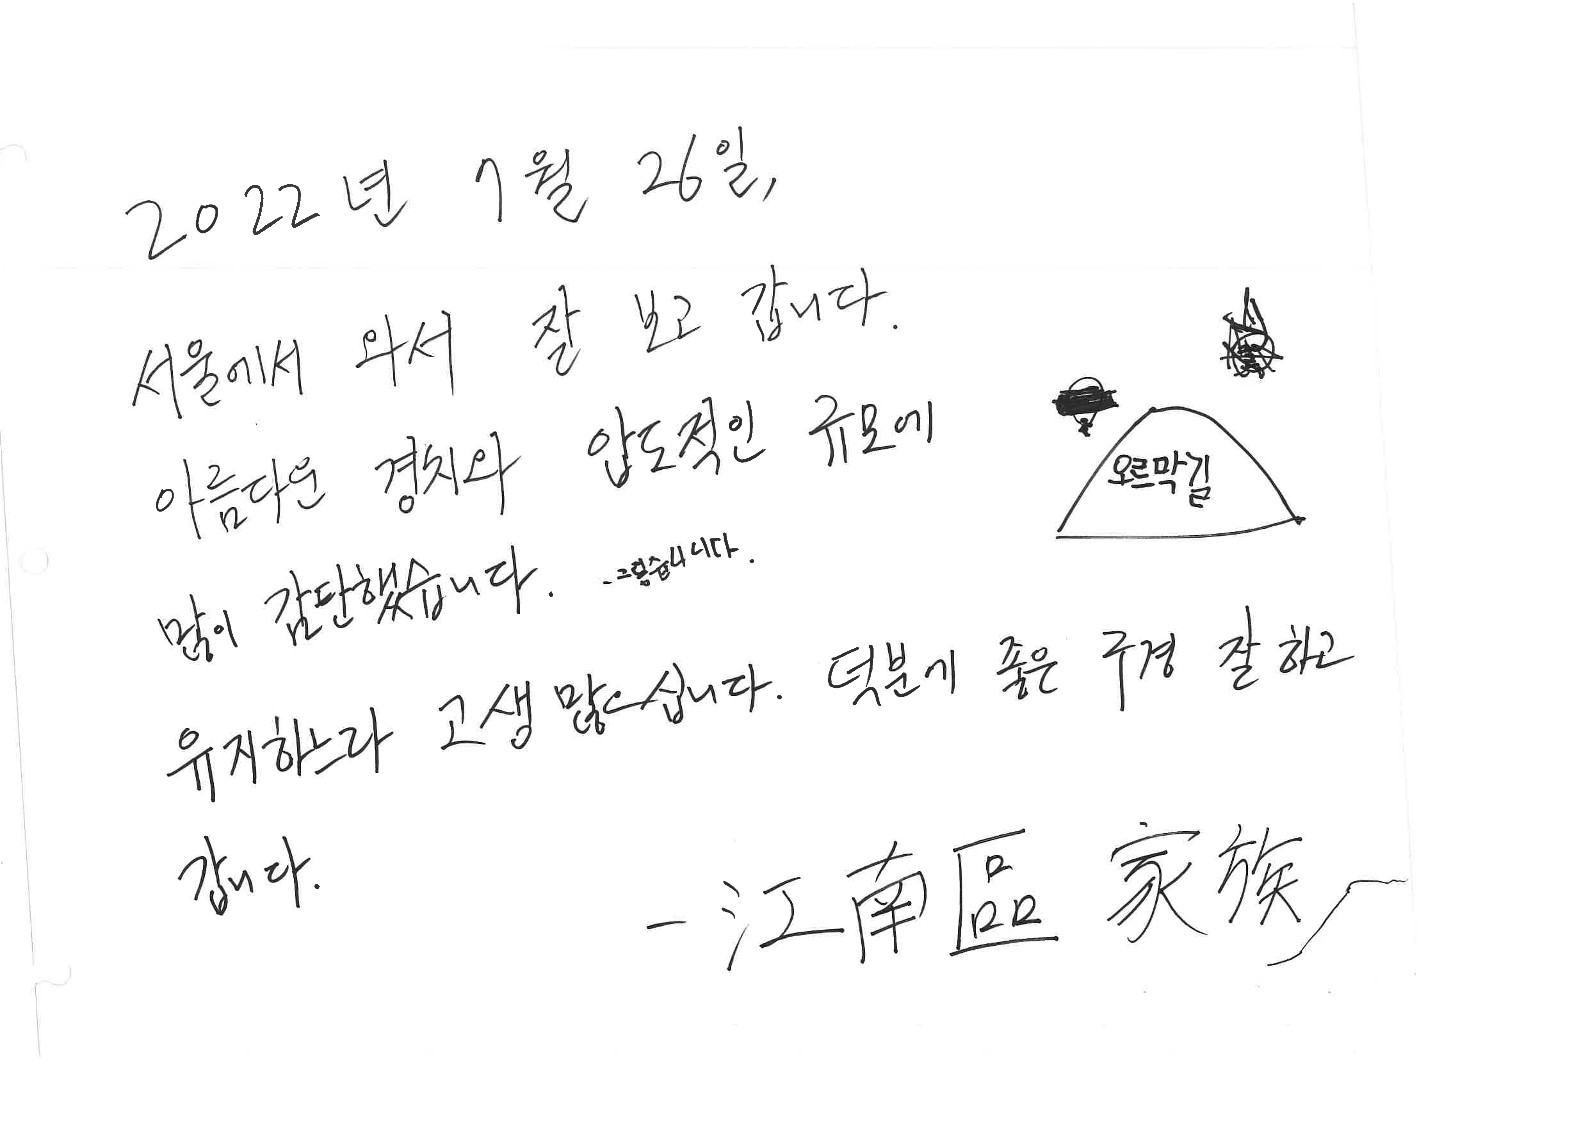 2022년 7월 26일,
서울에서 와서 잘 보고 갑니다.
아름다운 경치와 압도적인 규모에
오르막길
많이 감탄했습니다. -그렇습니다.
유지하느라 고생 많으십니다. 덕분에 좋은 구경 잘 하고
갑니다.
- 江南區 家族